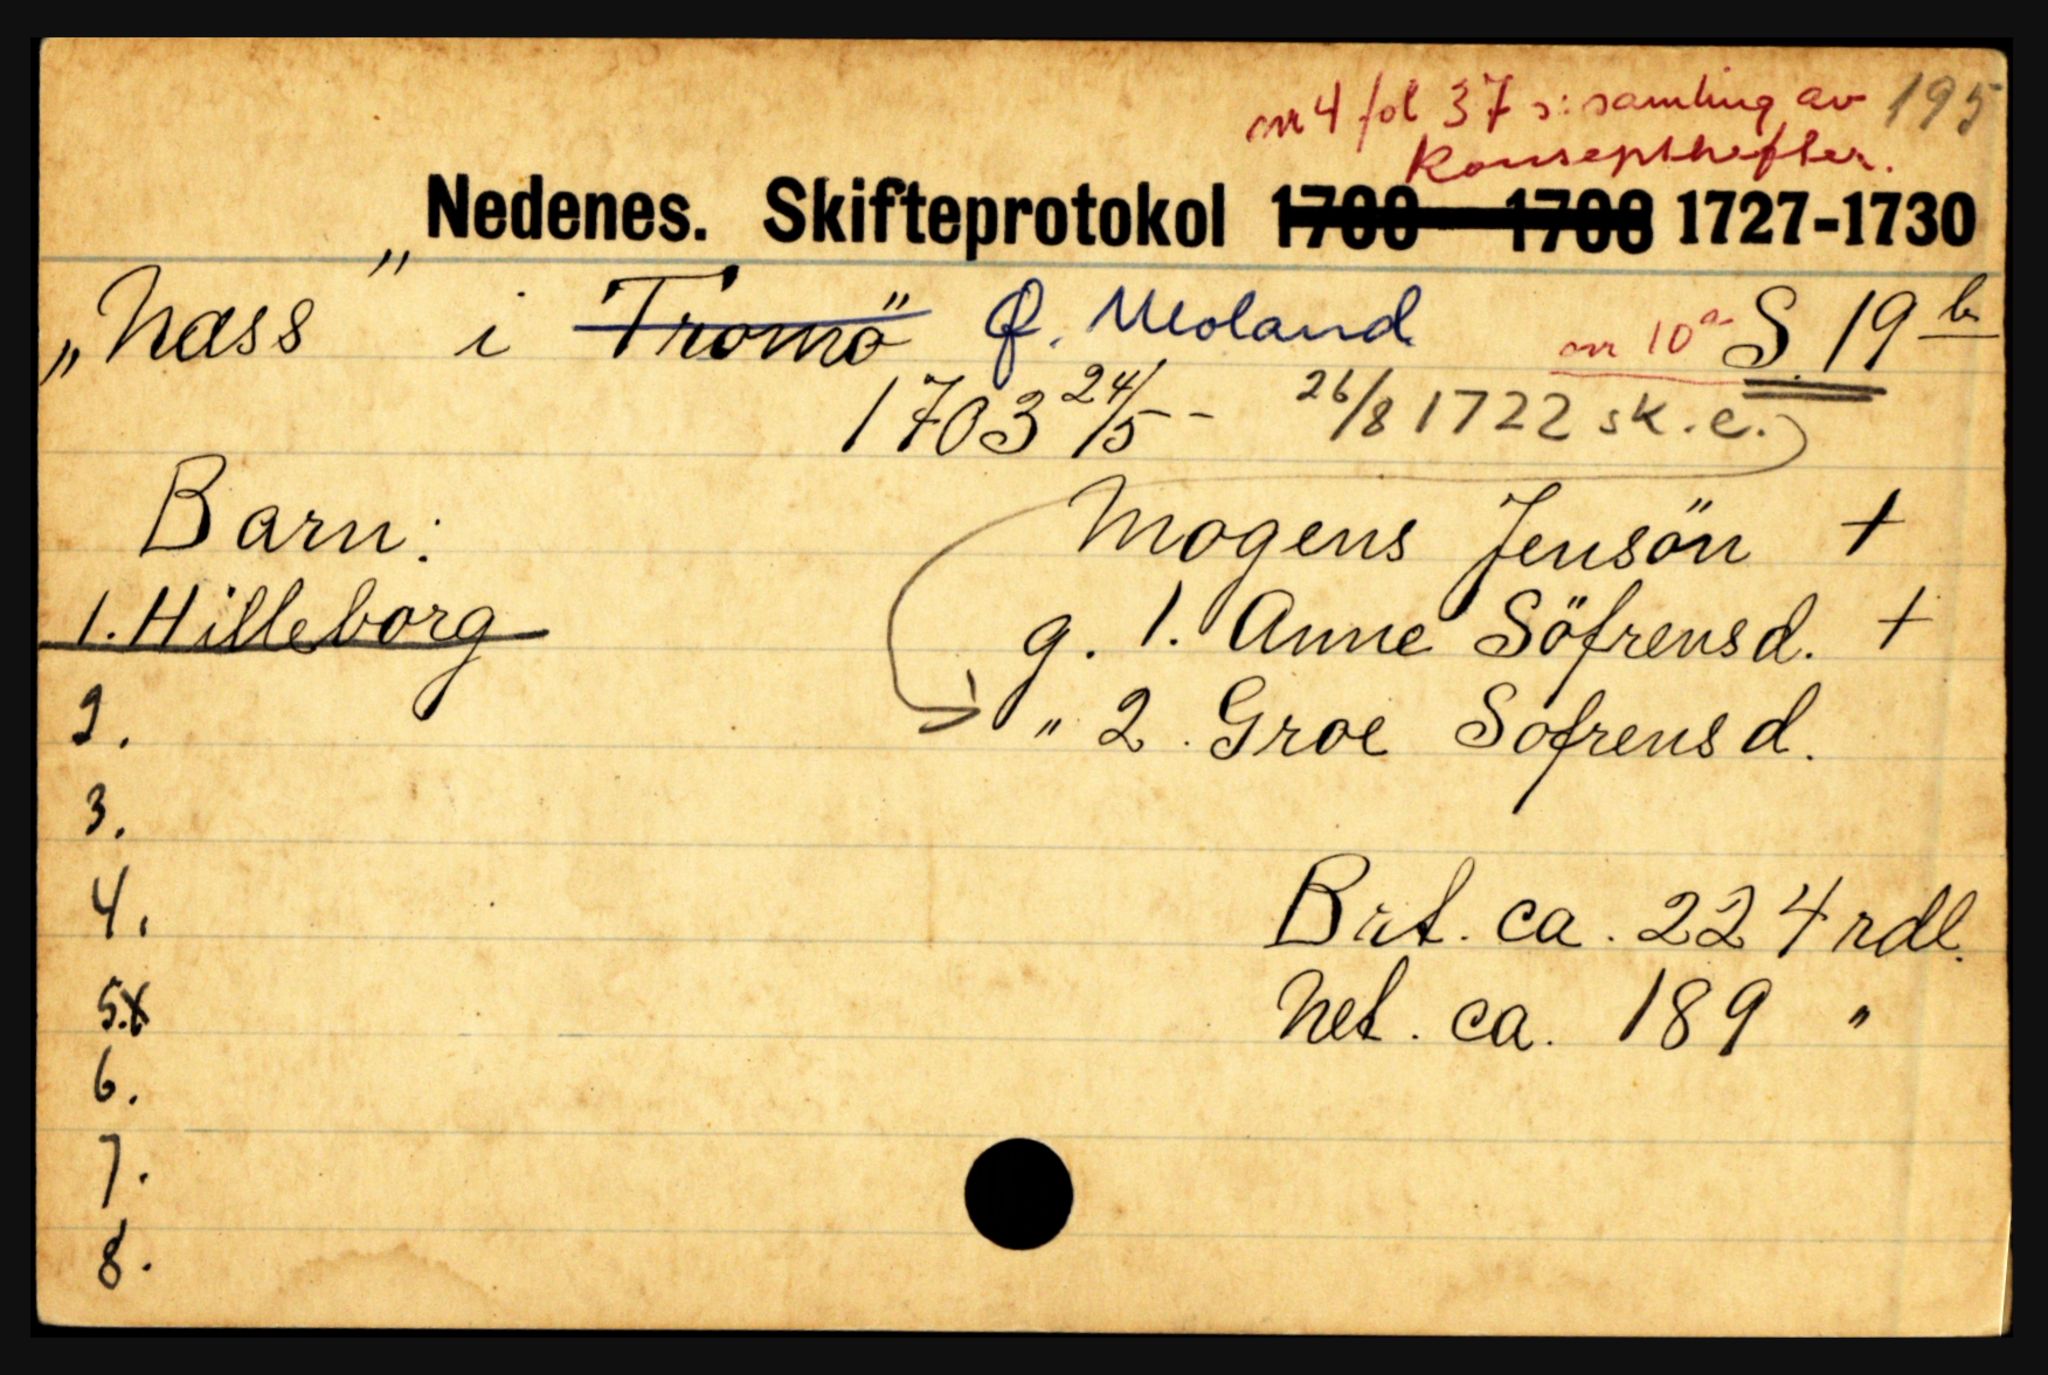 nr 4 fol 37 ɔ: samling av 195
Konsepthefter.
Nedenes. Skifteprotokol 1700-1708 1727-1730
„Næss" i Tromö" Ø. Moland nr 10a S. 19b
1703 24/5 - 26/8 1722 sk. e.
Barn: Mogens Jensön +
1. Hilleborg g. 1. Anne Söfrensd. +
2. " 2. Groe Sofrensd.
3.
4. Brt. ca. 224 rdl.
5. x Net. ca. 189 "
6.
7.
8.